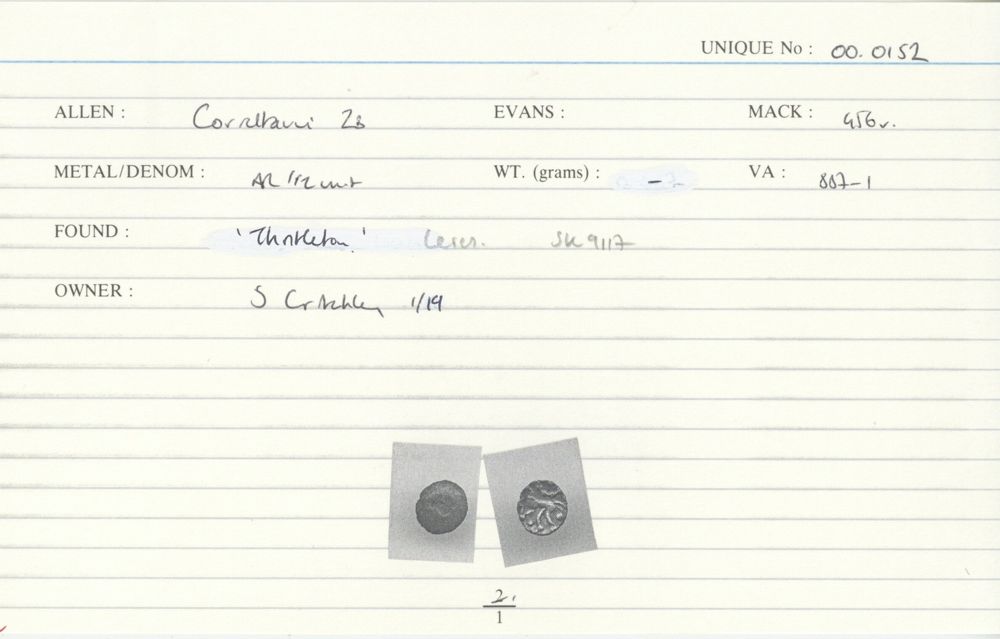 UNIQUE No : 00. 0152
ALLEN : Correltauvi 2B EVANS : MACK : 456v.
METAL/DENOM : AR 1/2 unit WT. (grams) : - VA : 887-1
FOUND : 'Thistleton' Leics. SK 9117
OWNER : S Critchley 1/19
2.
1